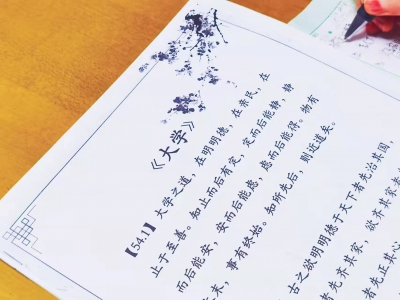 《大学》
【54.1】 大学之道，在明明德，在亲民，在
止于至善。知止而后有定，定而后能静，静
而后能安，安而后能虑，虑而后能得。物有
末，事有终始。知所先后，则近道矣。
古之欲明明德于天下者先治其国，
者先齐其家，欲齐其家
者先正其心